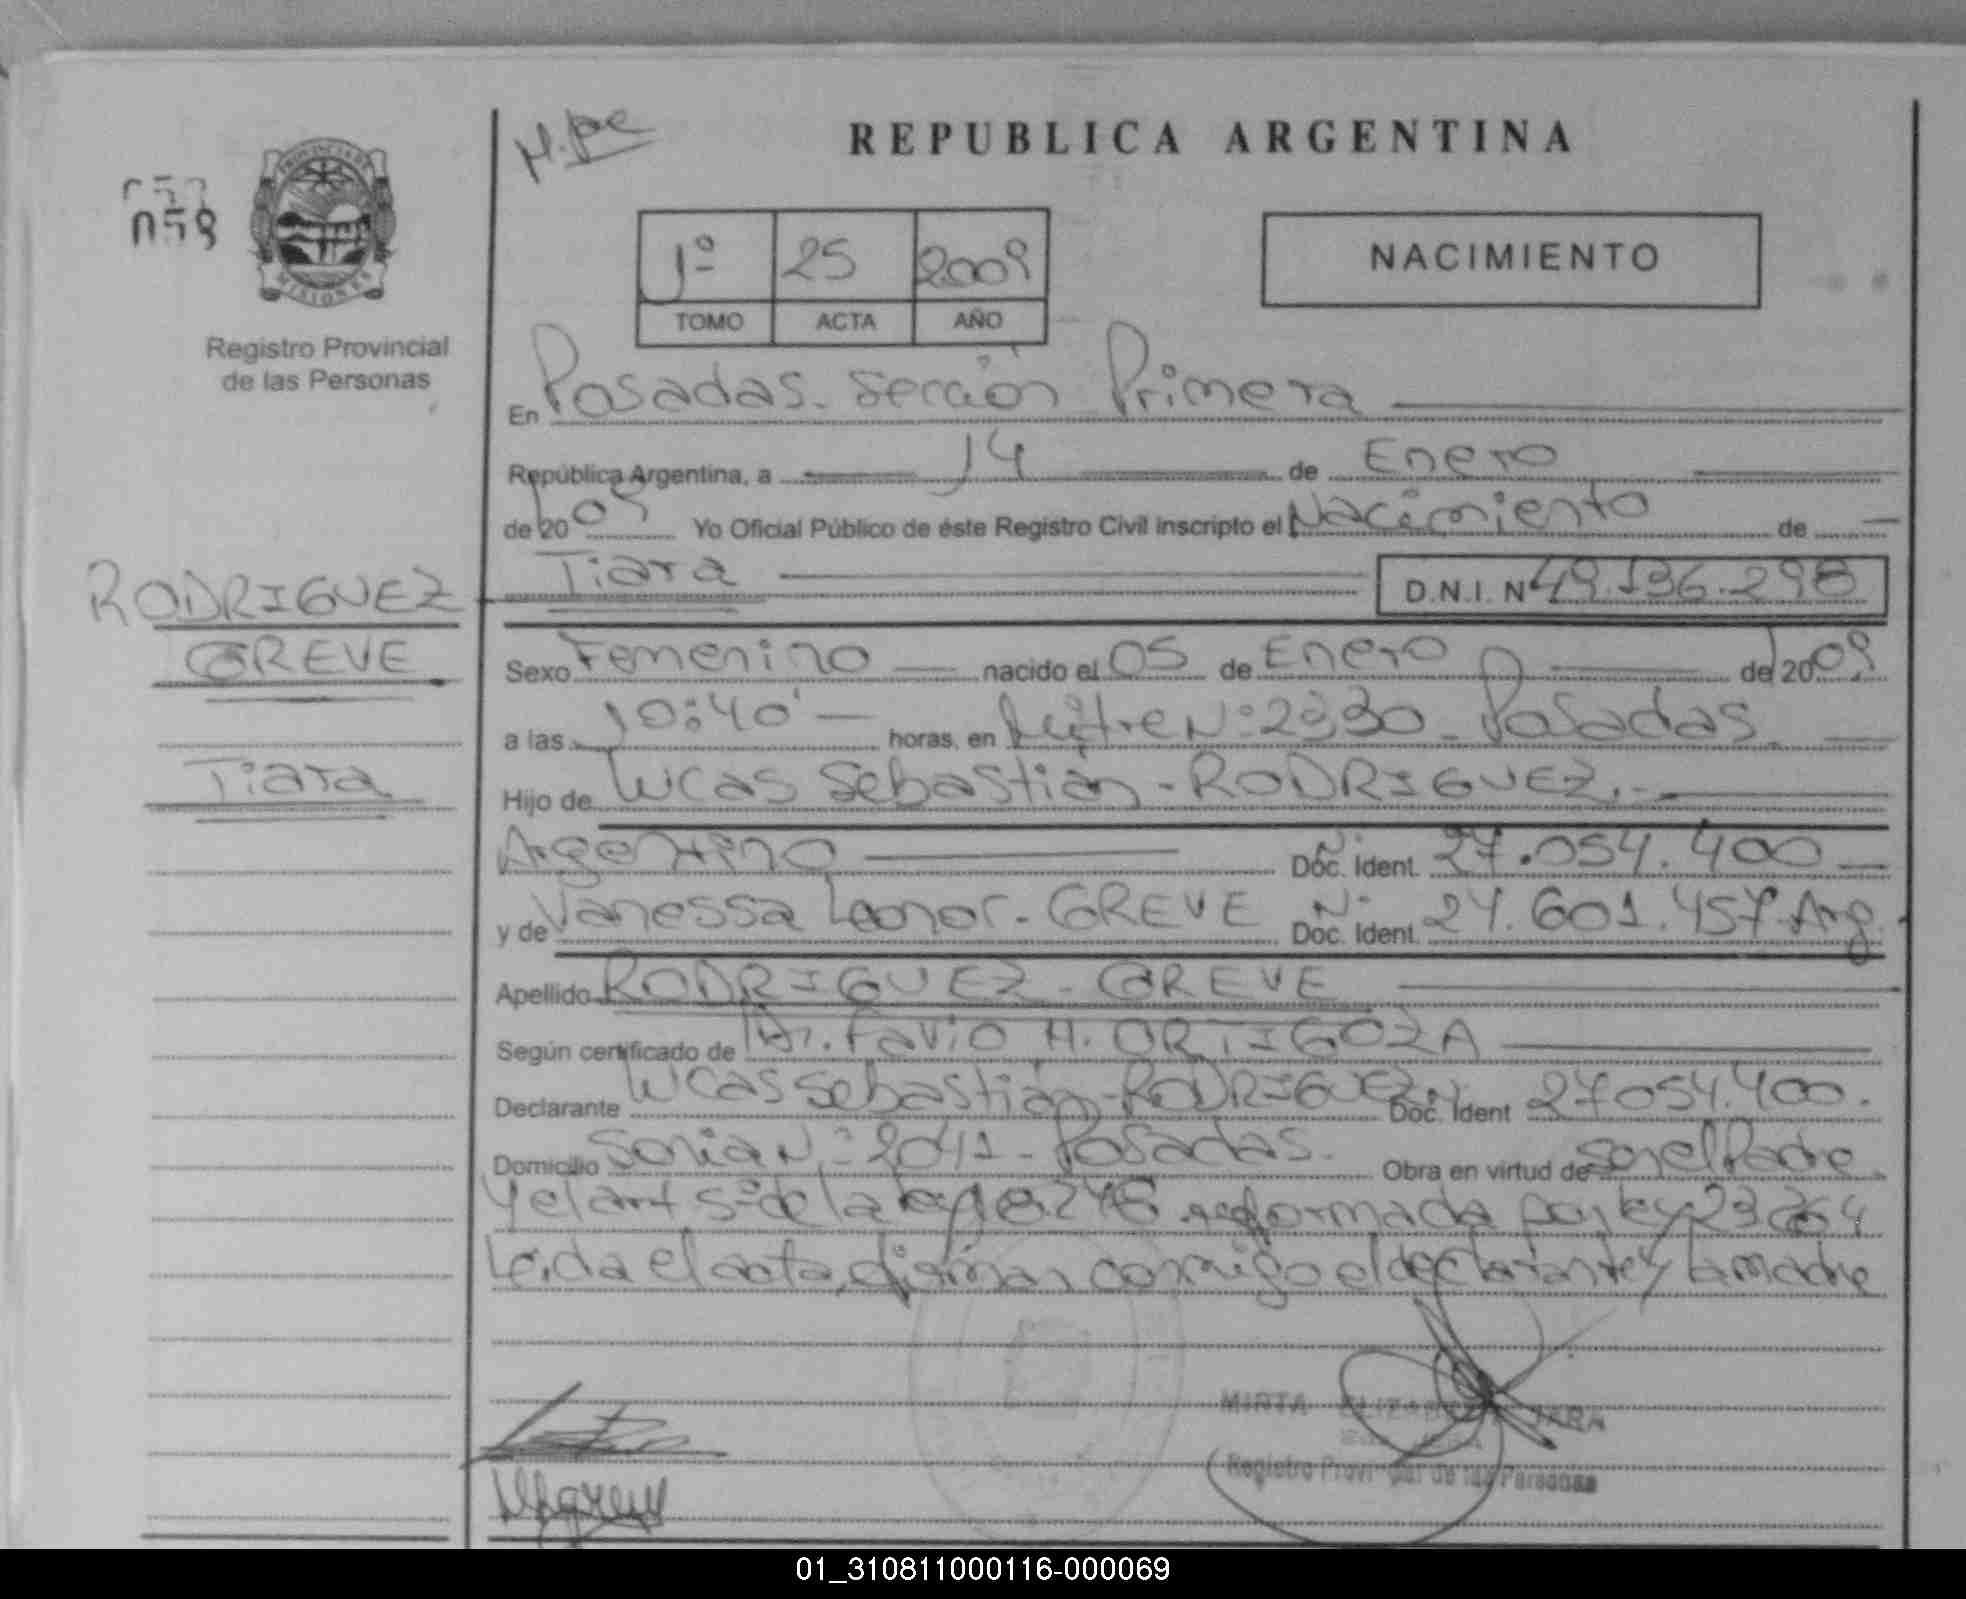 M.
REPUBLICA ARGENTINA
PROVINCIA DE
MISIONES
058
Registro Provincial
de las Personas
1º 25 2009
TOMO ACTA AÑO
NACIMIENTO
En Posadas. Sección Primera
República Argentina, a 14 de Enero
de 20 09 Yo Oficial Público de éste Registro Civil inscripto el Nacimiento de
Tiara D.N.I. Nº 49.136.298
RODRIGUEZ
GREVE
Tiara
Sexo Femenino nacido el 05 de Enero de 20 09
a las 10:40' horas, en Mitre Nº: 2330 - Posadas.
Hijo de Lucas Sebastián - RODRIGUEZ.-
Argentino Doc. Ident. Nº 27.054.400
y de Vanessa Leonor - GREVE Doc. Ident. Nº 24.601.457 Arg.
Apellido RODRIGUEZ - GREVE
Según certificado de Dr. Favio H. ORTIGOZA
Declarante Lucas Sebastián - RODRIGUEZ Doc. Ident Nº 27054.400.
Domicilio Soria Nº: 2041 - Posadas. Obra en virtud de Ser el Padre
y el art 5º de la ley 18.248 reformada por ley 23.264
Leída el acta, firman conmigo el declarante y la madre
MIRTA ELIZABETH JARA
Registro Provincial de las Personas
01_310811000116-000069